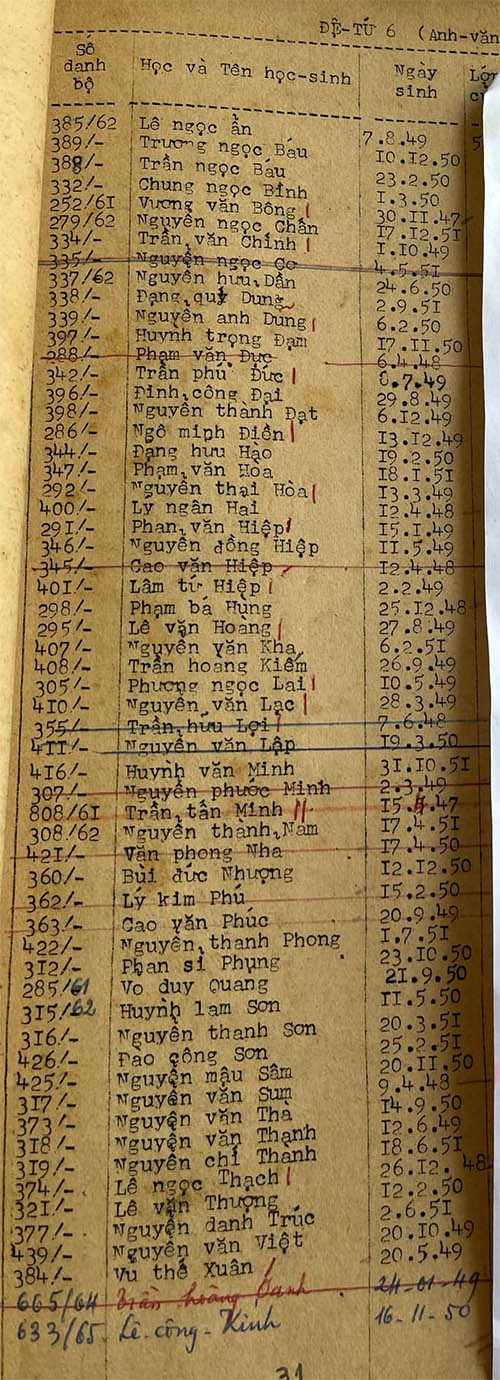 ĐỆ-TỨ 6 (Anh-văn
Số danh bộ Học và Tên học-sinh Ngày sinh
385/62 Lê ngọc ẩn 7.8.49
389/- Trương ngọc Báu 10.12.50
388/- Trần ngọc Báu 23.2.50
332/- Chung ngọc Bỉnh 1.3.50
252/61 Vương văn Bông 30.11.47
279/62 Nguyễn ngọc Chẩn 17.12.51
334/- Trần văn Chính 1.10.49
335/- Nguyễn ngọc Cơ 4.5.51
337/62 Nguyễn hữu Dần 24.6.50
338/- Đặng quý Dung 2.9.51
339/- Nguyễn anh Dũng 6.2.50
397/- Huỳnh trọng Đạm 17.11.50
288/- Phạm văn Đức 6.4.48
342/- Trần phú Đức 8.7.49
396/- Đinh công Đại 29.8.49
398/- Nguyễn thành Đạt 6.12.49
286/- Ngô minh Điền 13.12.49
344/- Đặng hữu Hào 19.2.50
347/- Phạm văn Hòa 18.1.51
292/- Nguyễn thái Hòa 13.3.49
400/- Lý ngân Hai 12.4.48
291/- Phan văn Hiệp 15.1.49
346/- Nguyễn đồng Hiệp 11.5.49
345/- Cao văn Hiệp 12.4.48
401/- Lâm tứ Hiệp 2.2.49
298/- Phạm bá Hùng 25.12.48
295/- Lê văn Hoàng 27.8.49
407/- Nguyễn văn Kha 6.2.51
408/- Trần hoàng Kiếm 26.9.49
305/- Phương ngọc Lai 10.5.49
410/- Nguyễn văn Lạc 28.3.49
355/- Trần hữu Lợi 7.6.48
411/- Nguyễn văn Lập 19.3.50
416/- Huỳnh văn Minh 31.10.51
307/- Nguyễn phước Minh 2.3.49
808/61 Trần tấn Minh 15.4.47
308/62 Nguyễn thành Nam 17.4.51
421/- Văn phong Nhã 17.4.50
360/- Bùi đức Nhượng 12.12.50
362/- Lý kim Phú 15.2.50
363/- Cao văn Phúc 20.9.49
422/- Nguyễn thanh Phong 1.7.51
312/- Phan sĩ Phụng 23.10.50
285/61 Võ duy Quang 21.9.50
315/62 Huỳnh lam Sơn 11.5.50
316/- Nguyễn thanh Sơn 20.3.51
426/- Đào công Sơn 25.2.51
425/- Nguyễn mậu Sâm 20.11.50
317/- Nguyễn văn Sum 9.4.48
373/- Nguyễn văn Tha 14.9.50
318/- Nguyễn văn Thạnh 12.6.49
319/- Nguyễn chí Thanh 18.6.51
374/- Lê ngọc Thạch 26.12.48
321/- Lê văn Thượng 12.2.50
377/- Nguyễn danh Trúc 2.6.51
439/- Nguyễn văn Việt 20.10.49
384/- Vũ thế Xuân 20.5.49
665/64 Trần hoàng Oanh 24-01-49
633/65 Lê-công-Kinh 16-11-50
31